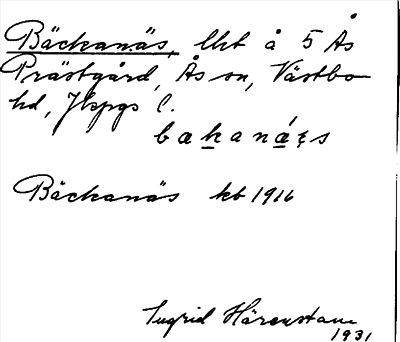 Bäckanäs, lht å 5 Ås
Prästgård, Ås sn, Västbo
hd, Jkpgs l.
bækanǽs
Bäckanäs kb 1916
Ingrid Härenstam
1931